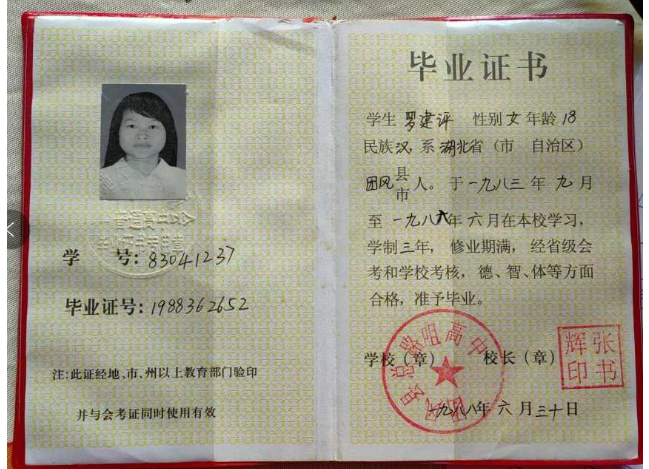 学 号:83041237
毕业证号:1988362652
注:此证经地、市、州以上教育部门验印
并与会考证同时使用有效
毕业证书
学生 罗建评 性别 女 年龄 18
民族 汉 系 湖北省（市 自治区）
团风 县市 人。于一九八三年 九 月
至 一九八六年 六 月在本校学习，
学制 三 年，修业期满，经省级会
考和学校考核，德、智、体等方面
合格，准予毕业。
学校（章） 校长（章）
总路咀高中
张书辉印
一九八八年 六 月 三十 日